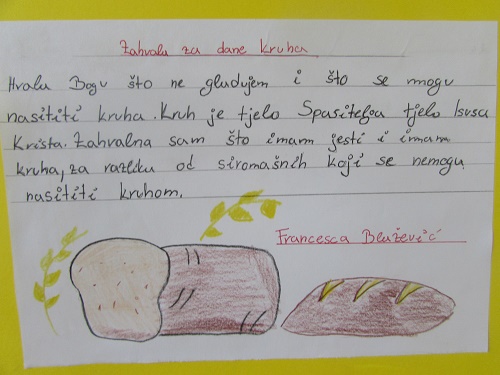 Zahvala za dane kruha
Hvala Bogu što ne gludujem i što se mogu
nasititi kruha. Kruh je tjelo Spasitelja tjelo Isusa
Krista. Zahvalna sam što imam jesti i imam
kruha, za razliku od siromašnih koji se nemogu
nasititi kruhom.
Francesca Blužević